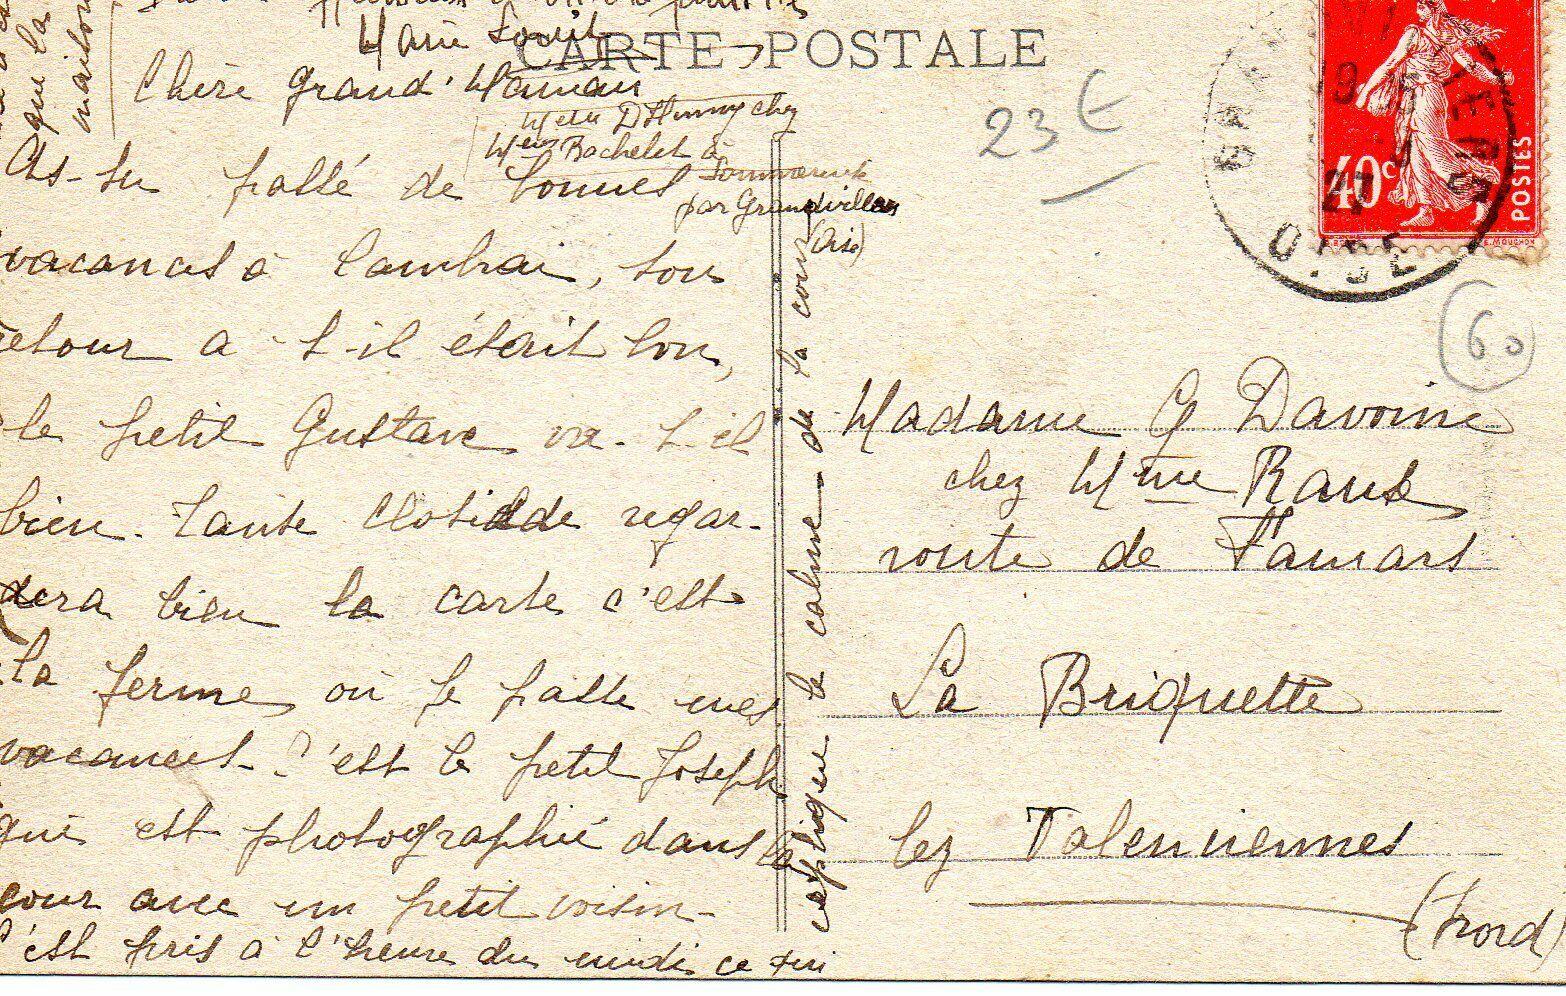 CARTE POSTALE
Marie Louise
Chère Grand' Maman
Melle D'Hinny chez
Mme Bachelet à
Sommereux
par Grandvilliers
(Oise)
As-tu passé de bonnes
vacances à Cambrai, ton
retour a-t-il était bon,
le petit Gustave va-t-il
bien. Tante Clotilde regar-
dera bien la carte c'est
la ferme où je passe mes
vacances. C'est le petit Joseph
qui est photographié dans la
cour avec un petit voisin-
C'est pris à l'heure du midi ce qui
explique le calme de la cour
que la
maison
23 E
40c
POSTES
E. MOUCHON
OISE
27
60
Madame G Davoine
chez Mme Raux
route de Famars
La Briquette
lez Valenciennes
(Nord)